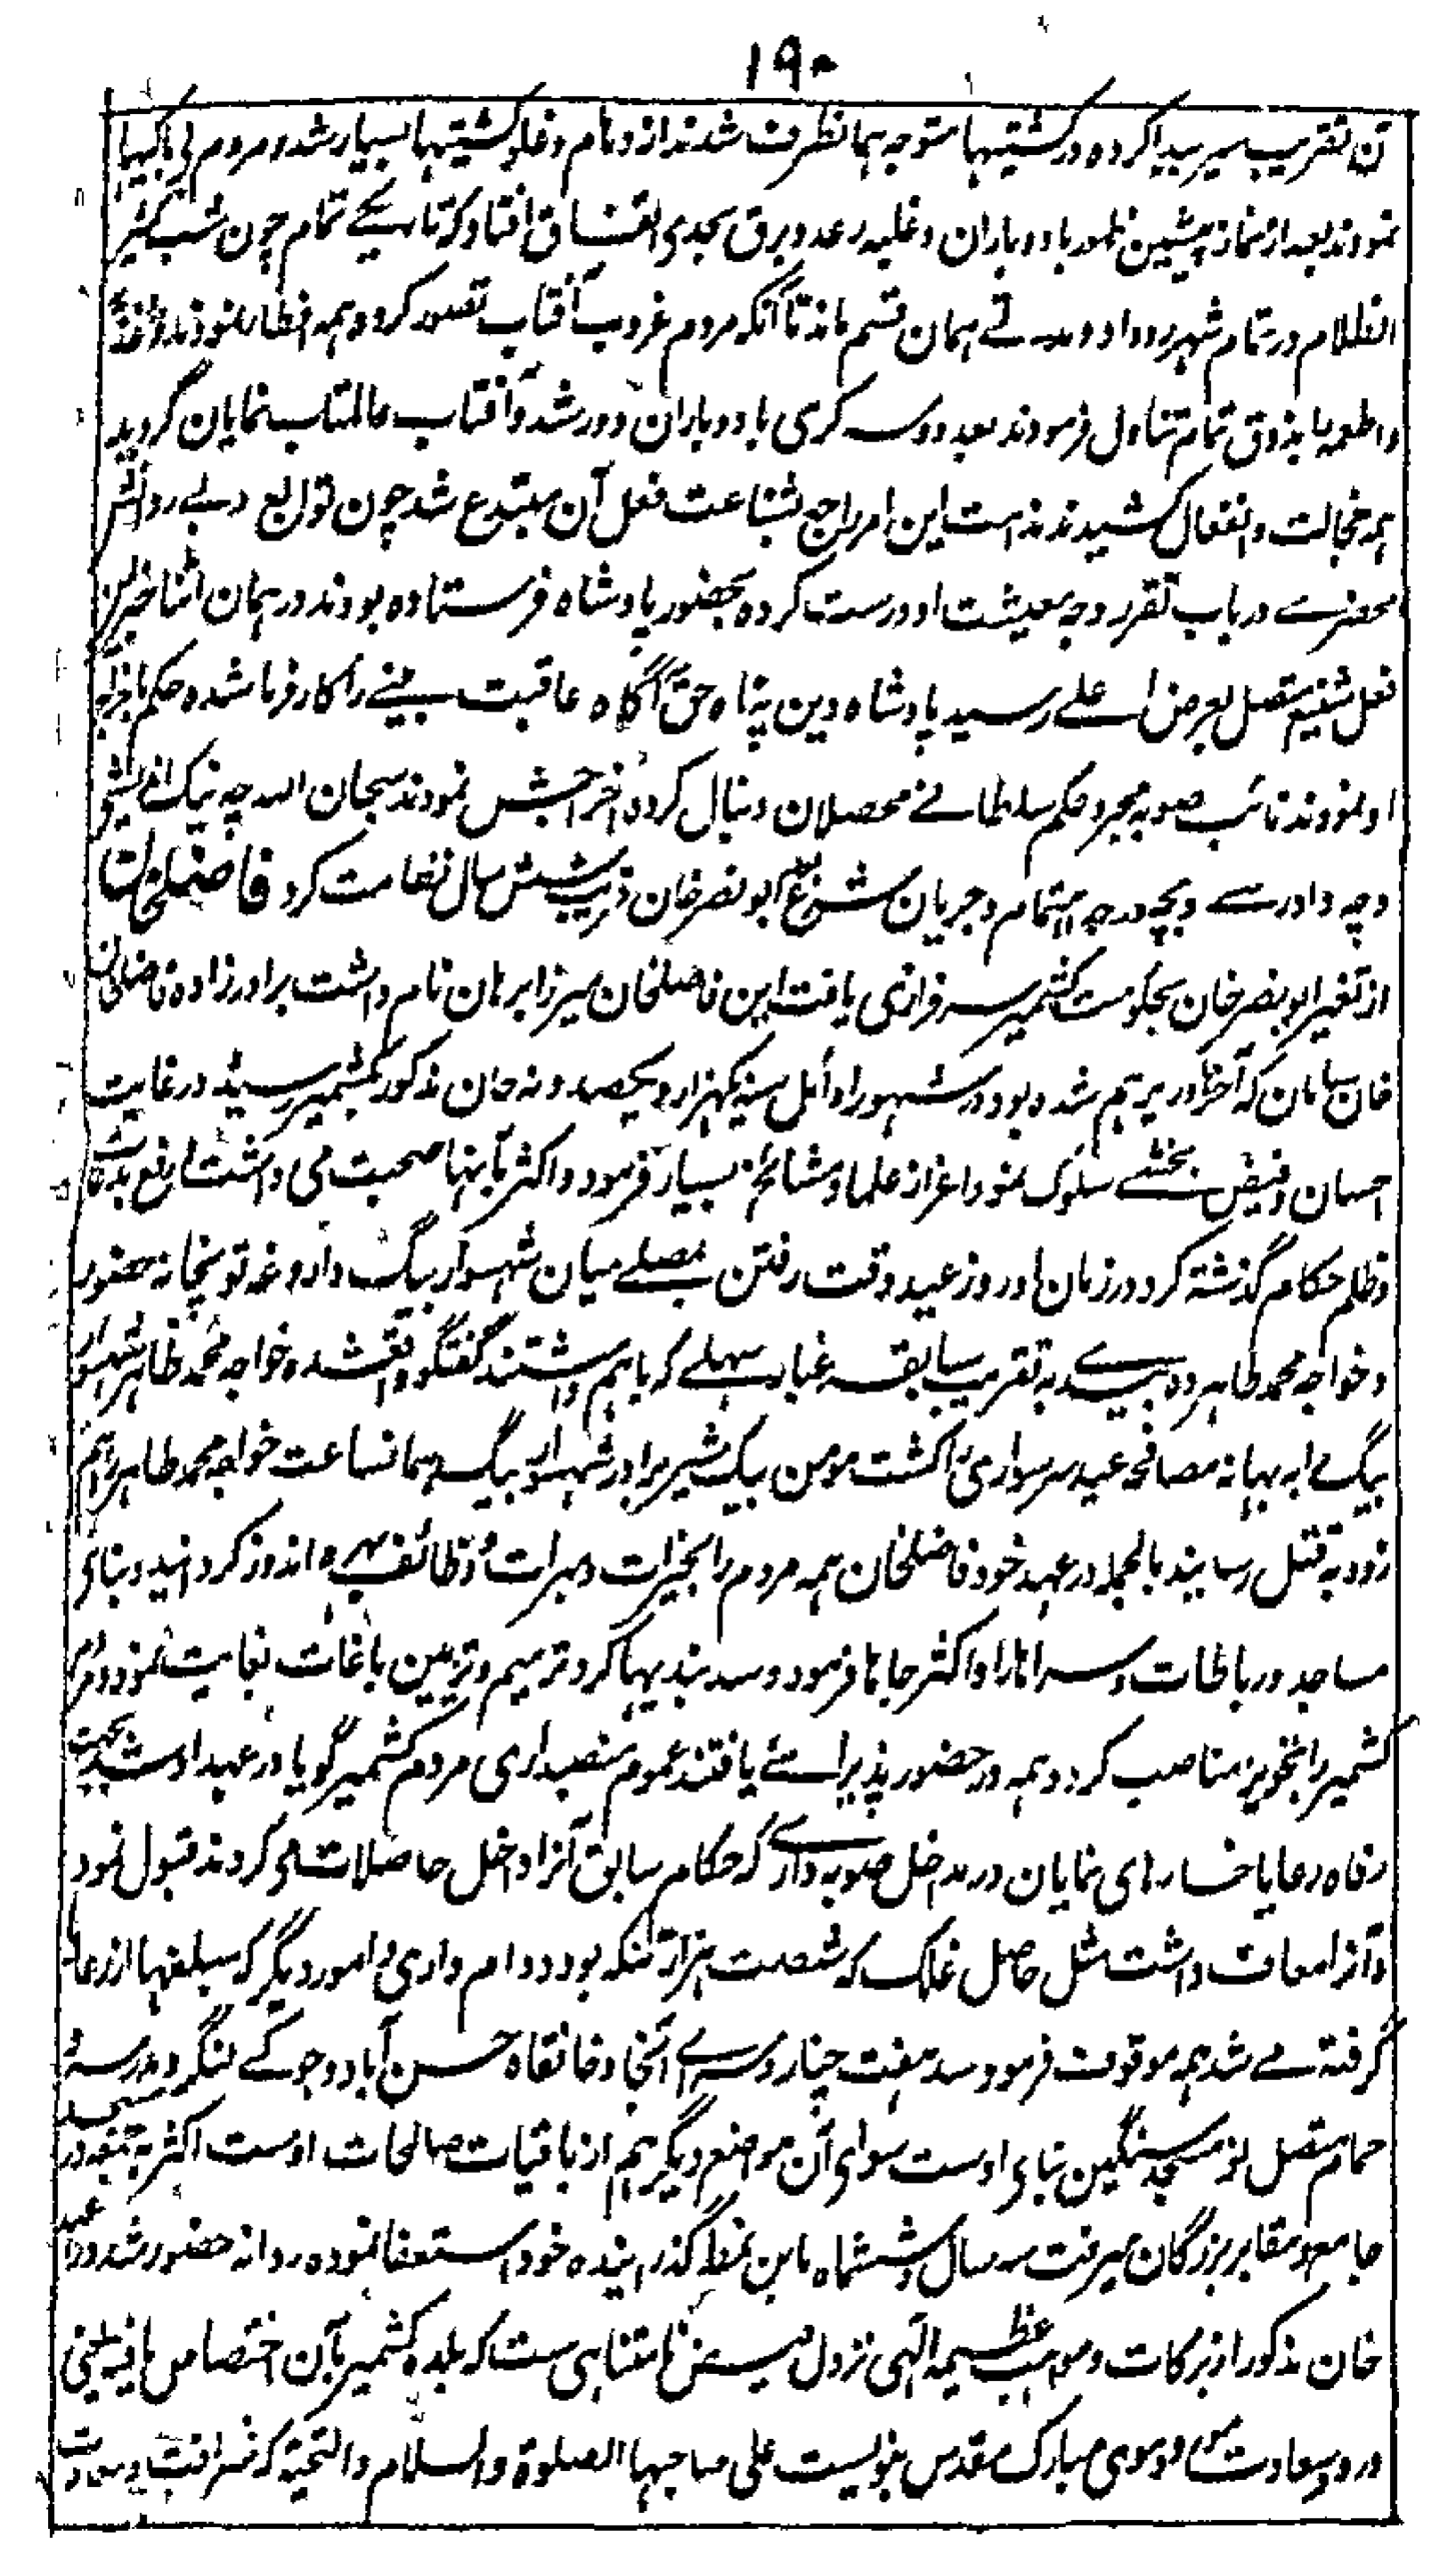 ۱۹۰
آن تقریب سیر پیدا کرده در کشتیها متوجه همانطرف شدند ازدحام و غلو کشتیها بسیار شد و مردم بی باکیها
نمودند بعد از نماز پیشین ظهور باد و باران و غلبه رعد و برق بحدی اتفاق افتاد که تاریکی تمام چون شب
الظلام در تمام شهر رو داد و مدتی همان قسم ماند تا آنکه مردم غروب آفتاب تصور کرده همه افطار نمودند و
و اطعمه با بذوق تمام تناول فرمودند بعد دو سه کری باد و باران دور شد و آفتاب عالمتاب نمایان گردید
همه خجالت و انفعال کشیدند ندامت این امر راجع بشناعت فعل آن مبتدع شد چون توابع دلی روانش
محضری در باب تقرر وجه معیشت او درست کرده بحضور پادشاه فرستاده بودند در همان اثنا خبر این
فعل شنیع متصل بعرض اعلی رسید پادشاه دین پناه حق آگاه عاقبت بینی را کار فرما شده حکم باخراج
او نمودند نائب صوبه بمجرد حکم سلطانی محصلان دنبال کرده اخراجش نمودند سبحان الله چه نیک اندیشی
و چه دادرسی و بچه درجه اهتمام و جریان شرع ابو نصر خان قریب شش سال نظامت کرد فاضلخان
از تغیر ابو نصر خان بحکومت کشمیر سرفرازی یافت این فاضلخان میرزا برهان نام داشت برادر زاده فاضلخان
خان سامان که آخر وزیر هم شده بود در شهور اوائل سنه یکهزار و یکصد و نه خان مذکور بکشمیر رسیده در غایت
احسان و فیض بخشی سلوک نمود اعزاز علما و مشائخ بسیار فرمود و اکثر بآنها صحبت می داشت رفع بدعت
و ظلم حکام گذشته کرد در زمان او روز عید وقت رفتن بمصلی میان شهسوار بیگ داروغه توپخانه حضور
و خواجه محمد طاهر ده بیدی به تقریب سابقه غبار سهلی که باهم داشتند گفتگو واقع شد و خواجه محمد طاهر شهسوار
بیگ را به بهانه مصافحه عید سر سواری کشت مومن بیگ شیر برادر شهسوار بیگ همانساعت خواجه محمد طاهر را هم
زود به قتل رسانید بالجمله در عهد خود فاضلخان همه مردم را بخیرات و مبرات و وظائف بهره اندوز کردانید و بنای
مساجد و رباطات و سراها را و اکثر جاها فرمود و سد بندیها کرد ترمیم و تزیین باغات بغایت نمود و مردم
کشمیر را تجویز مناصب کرد و همه در حضور پذیرائی یافتند عموم منصبداری مردم کشمیر گویا در عهد او شد بجهت
رفاه رعایا خسارهای نمایان در مداخل صوبه داری که حکام سابق آنرا داخل حاصلات می کردند قبول نمود
و آنرا معاف داشت مثل حاصل نمک که شصت هزار تنکه بود و دام داری و امور دیگر که مبلغها از رعایا
گرفته می شد همه موقوف فرمود سد هفت چنار و سرای آنجا و خانقاه حسن آباد و جوکی لنکر و مدرسه
حمام متصل او مسجد سنگین بنای اوست سوای آن مواضع دیگر هم از باقیات صالحات اوست اکثر به بقعه در مسجد
جامع و مقابر بزرگان میرفت سه سال و ششماه باین نمط گذرانیده خود استعفا نموده روانه حضور شد و در عهد
خان مذکور از برکات و مواهب عظیمه الهی نزول فیض نامتناهی ست که بلده کشمیر بآن اختصاص یافته یعنی
ورود سعادت موی مبارک مقدس نبویست علی صاحبها الصلوة والسلام والتحیة که شرافت و سعادت